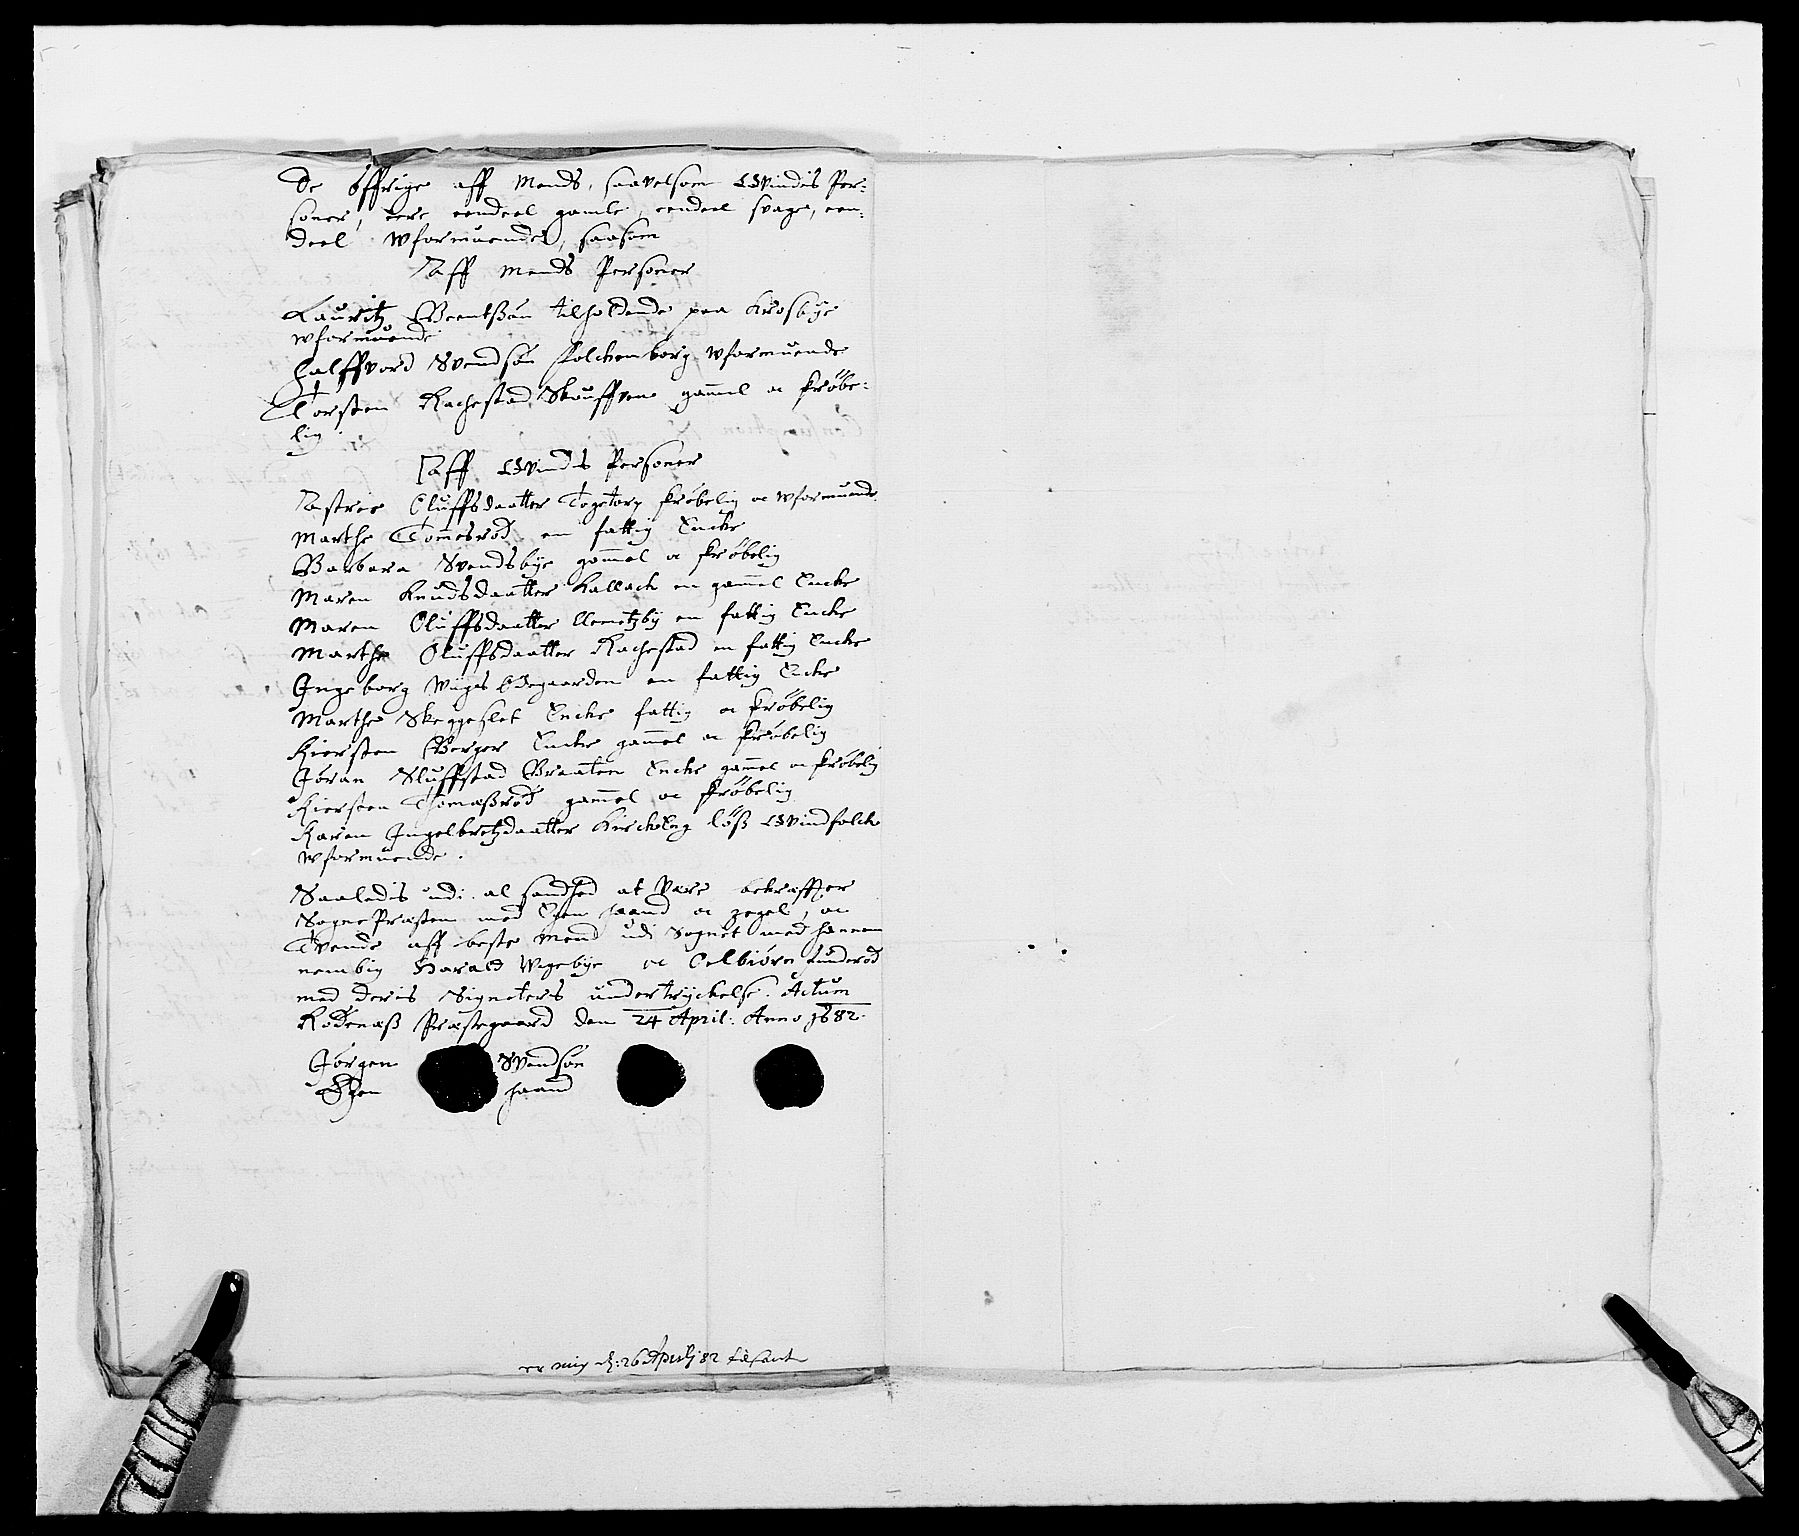 De öffrige aff Mends, saavelsom Qvindis Per:
soner, ere eendeel gamle, eendeel svage, een:
deel wformuende, saasom
Aff Mends Personer
Lauritz Beentßøn tilholdende paa Krosbye
wformuende
Halffvord Svendsøn Folckenborg wformuende
Torsten Rachestad Skouffven gam̄el oc skröbe:
lig.
Aff Qvindis Personer
Astrie Oluffsdaatter Togetorp skröbelig oc wformuende
Marthe Tom̄esröd en fattig Encke
Barbara Svendsbye gammel oc skröbelig
Maren Knudsdaatter Kallack en gammel Encke
Maren Oluffsdaatter Clemetzby en fattig Encke
Marthe Oluffsdaatter Rachestad en fattig Encke
Ingeborg Wiiges Ödegaarden en fattig Encke
Marthe Skeggeslet Encke fattig oc skröbelig
Kiersten Berger Encke gam̄el oc skröbelig
Jöran Sluffstad Braaten Encke gam̄el oc skröbelig
Kiersten Thomaßröd gam̄el oc skröbelig
Karen Ingelbretzdaatter Kirckeng löß Qvindfolck
wformuende.
Saaledis udi al sandhed at være bekraffter
SognePræsten med Egen haand oc zegel, oc
Tvende aff beste Mend udi Sognet med hannem
nemblig Harald Wigebye oc Oelbiörn Lunderöd
med deris Signeters undertryckelse. Actum
Rödenæß Præstegaard den 24 April: Anno 1682.
Jörgen Svendsøn
Egen haand
er mig d: 26 Aprilj 82 tilsent